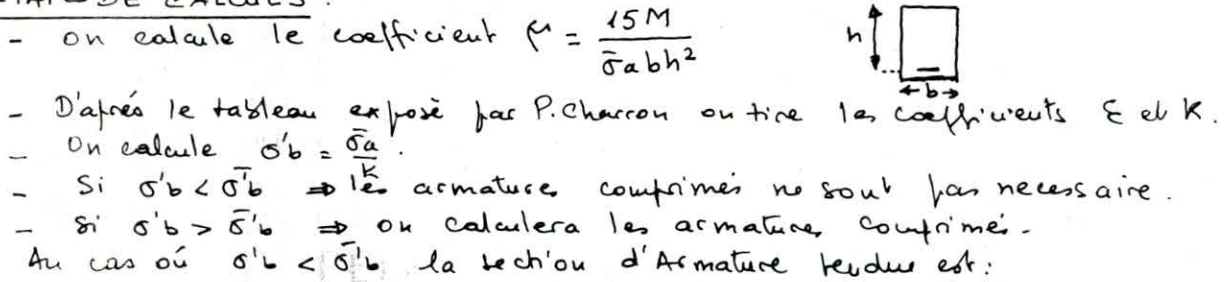 DE CALCULS :
- on calcule le coefficient μ = 15M / σ̄a b h²
h
b
- D'aprés le tableau exposè par P. Charron on tire les coefficients ε et K.
- On calcule σ'b = σ̄a / k .
- Si σ'b < σ̄'b ⇒ les armatures comprimés ne sont pas necessaire.
- Si σ'b > σ̄'b ⇒ on calculera les armatures comprimés.
Au cas où σ'b < σ̄'b la section d'Armature tendue est :